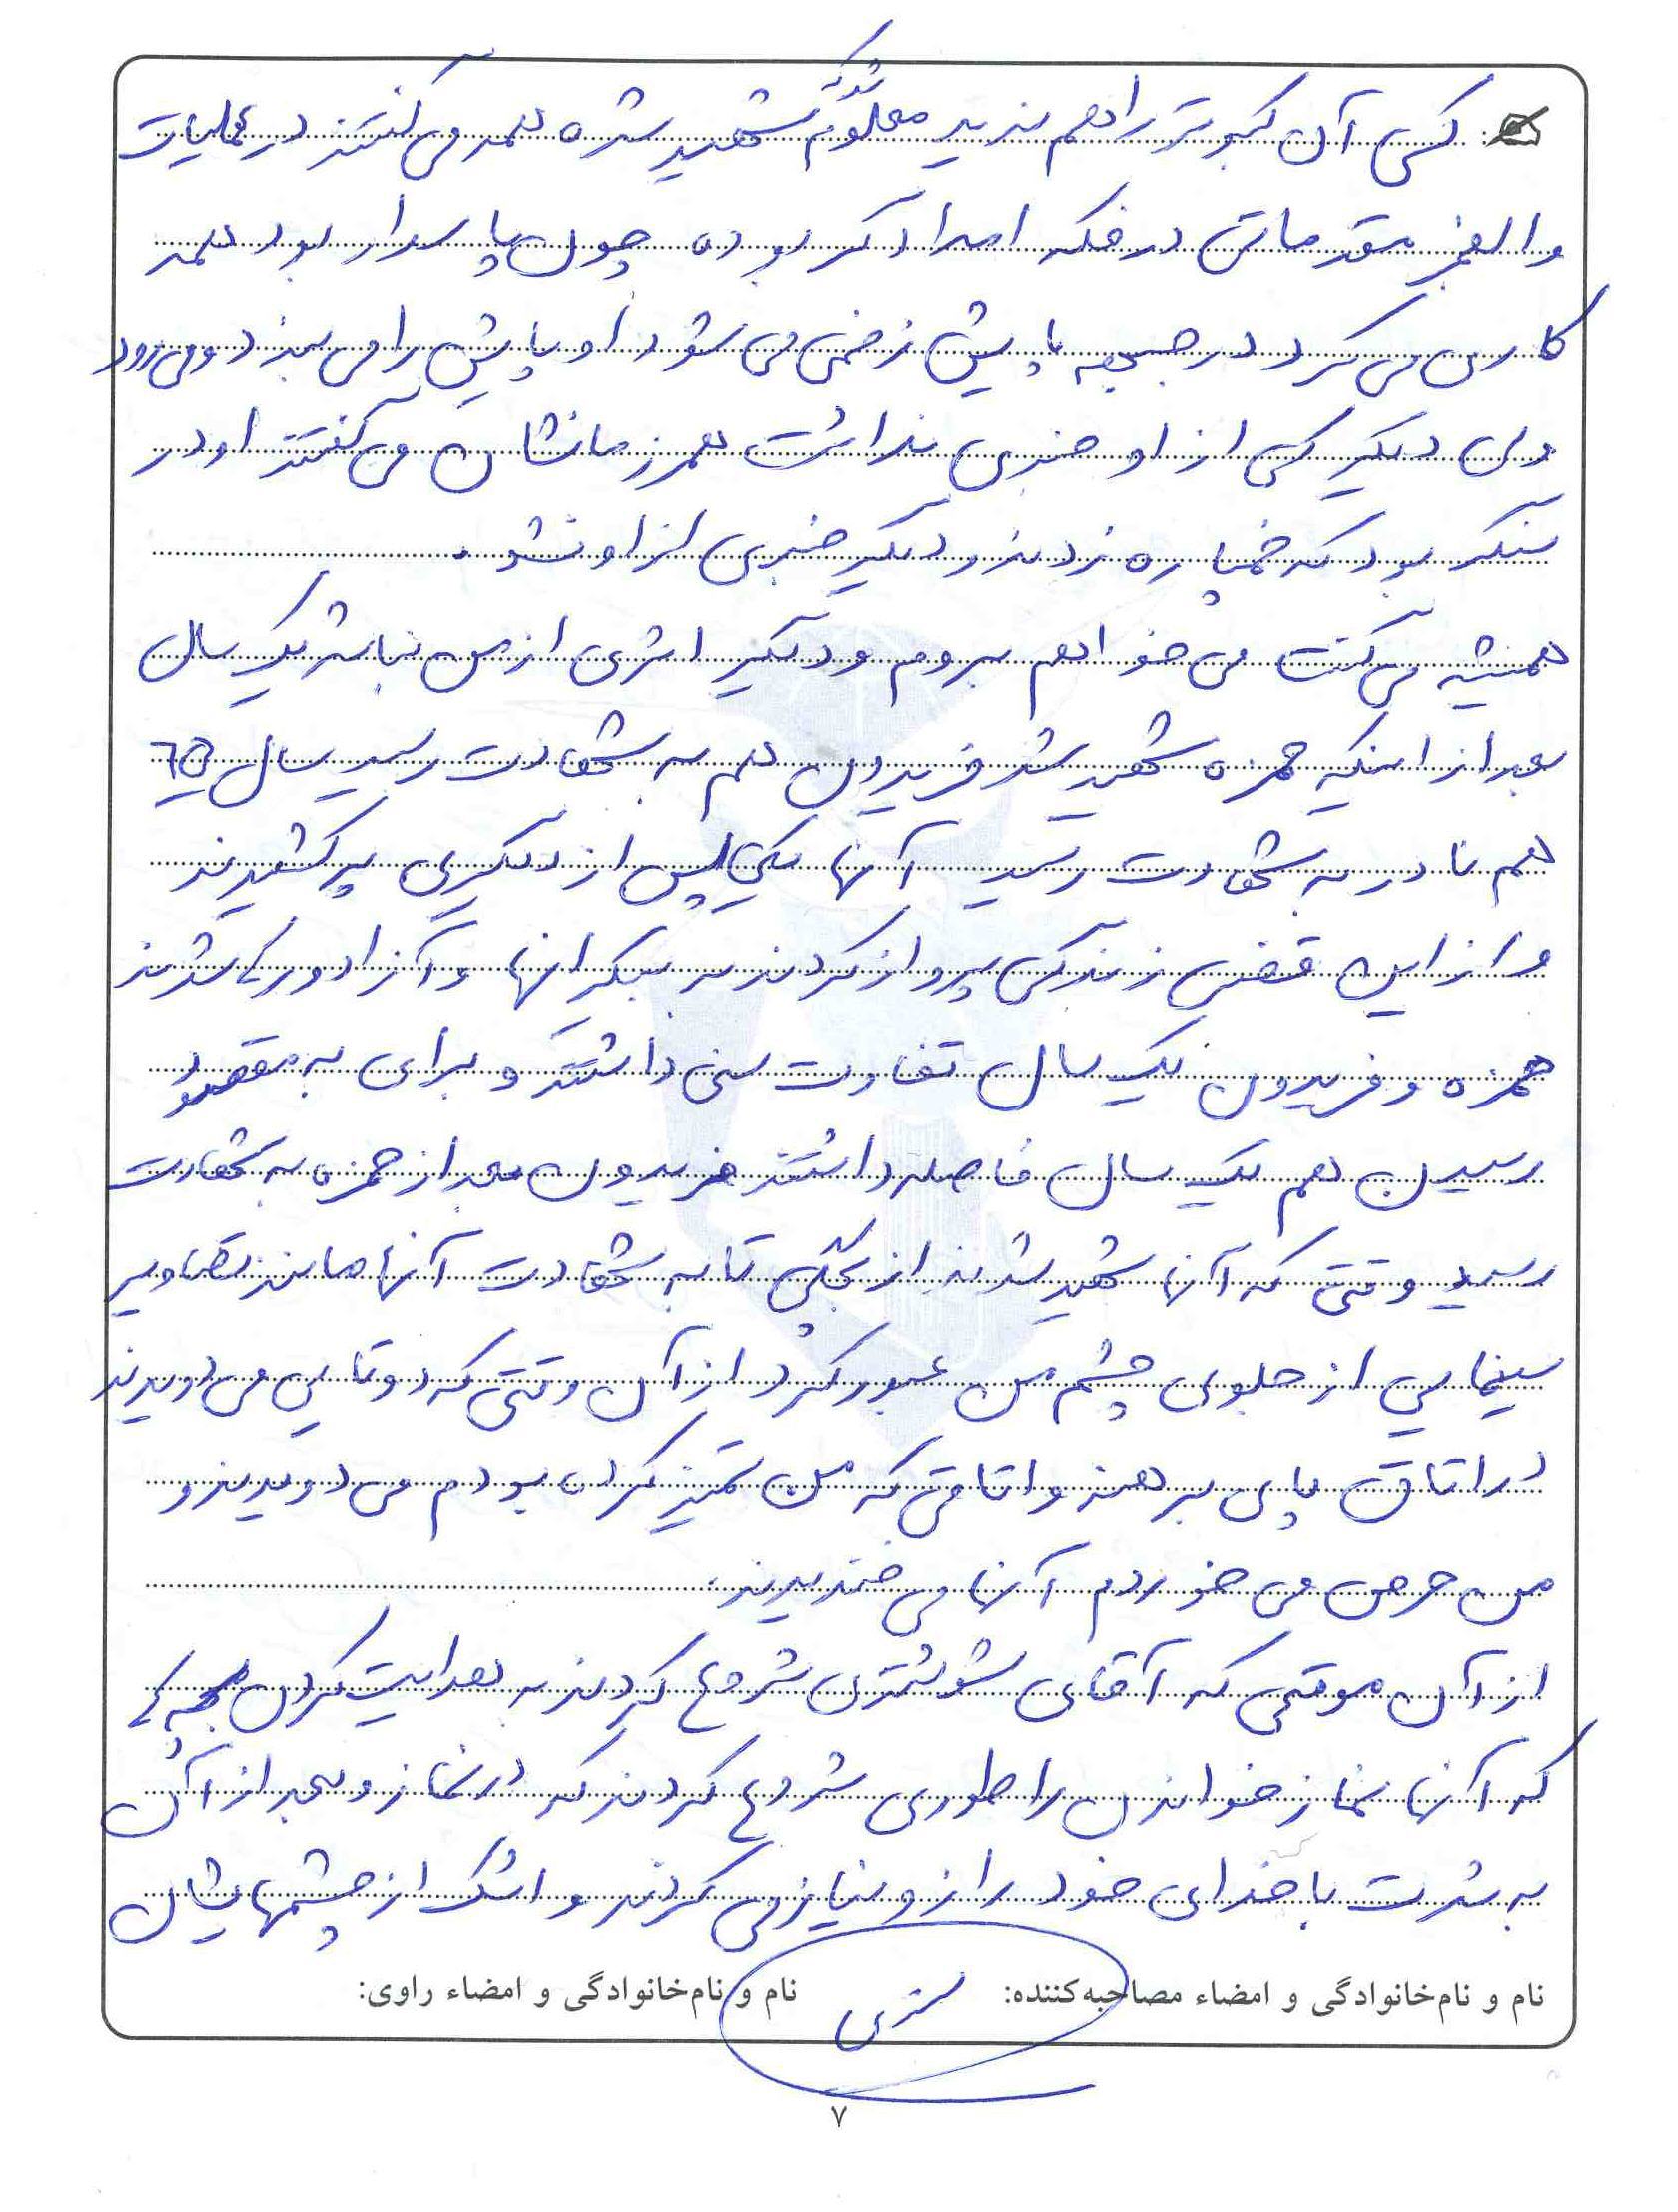 کسی آن کبوتر را هم ندید معلوم شد که شهید شده همه می گفتند در عملیات
والفجر مقدماتی در فکه امدادگر بوده چون پاسدار بود همه
کاری می کرد در جبهه پایش زخمی می شود او پایش را می بندد و می رود
ولی دیگر کسی از او خبری نداشت همرزمانشان می گفتند او در
سنگر بود که خمپاره زدند و دیگر خبری از او نشد.
همیشه می گفت می خواهم بروم و دیگر اثری از من نباشد یک سال
بعد از اینکه حمزه شهید شد فریدون هم به شهادت رسید سال ۶۵
هم نادر به شهادت رسید آنها یکی پس از دیگری پر کشیدند
و از این قفس زندگی پرواز کردند به بیکرانها و آزاد و رها شدند
حمزه و فریدون یک سال تفاوت سنی داشتند و برای به مقصود
رسیدن هم یک سال فاصله داشتند فریدون بعد از حمزه به شهادت
رسید وقتی که آنها شهید شدند از بچگی تا به شهادت آنها مانند تصاویر
سینمایی از جلوی چشم من عبور کرد از آن وقتی که دوتایی می دویدند
در اتاق پای برهنه و اتاقی که من تمیز کرده بودم می دویدند و
من حرص می خوردم آنها می خندیدند.
از آن موقعی که آقای شوشتری شروع کردند به هدایت کردن بچه ها
که آنها نماز خواندن را طوری شروع کردند که در نماز و بعد از آن
به شدت با خدای خود راز و نیاز می کردند و اشک از چشمهایشان
نام و نام‌خانوادگی و امضاء مصاحبه‌کننده: نام و نام‌خانوادگی و امضاء راوی:
۷